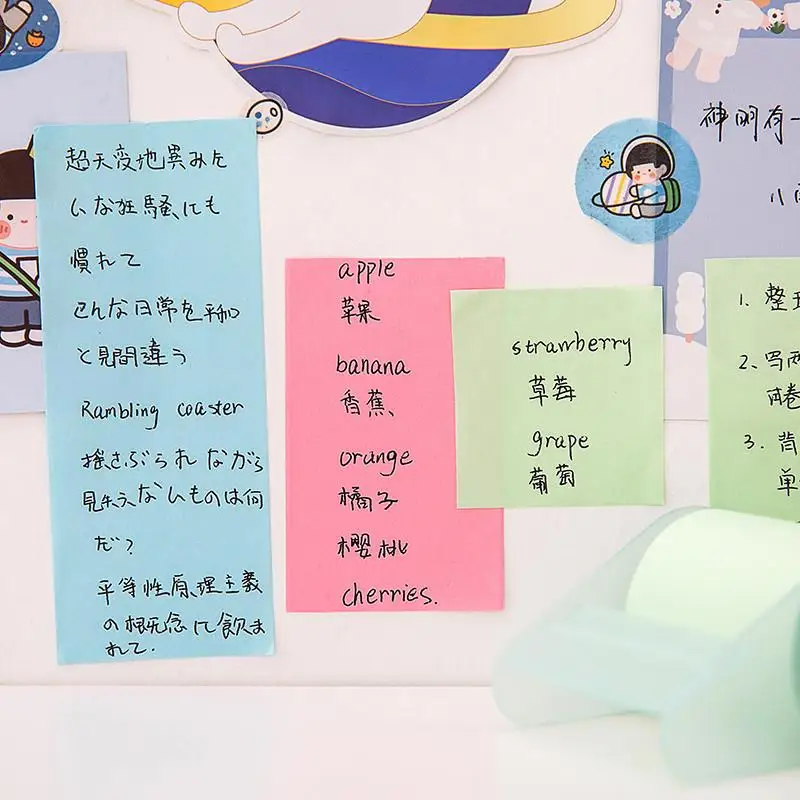 超天変地異みた
いな狂騒にも
慣れて
こんな日常を平和
と見間違う
Rambling coaster
揺さぶられながら
見失うないものは何
だ?
平等性原理主義
の概念に飲ま
れて.
apple
苹果
banana
香蕉
orange
橘子
樱桃
cherries.
strawberry
草莓
grape
葡萄
神明有一
1. 整理
2、写两
3. 背
单